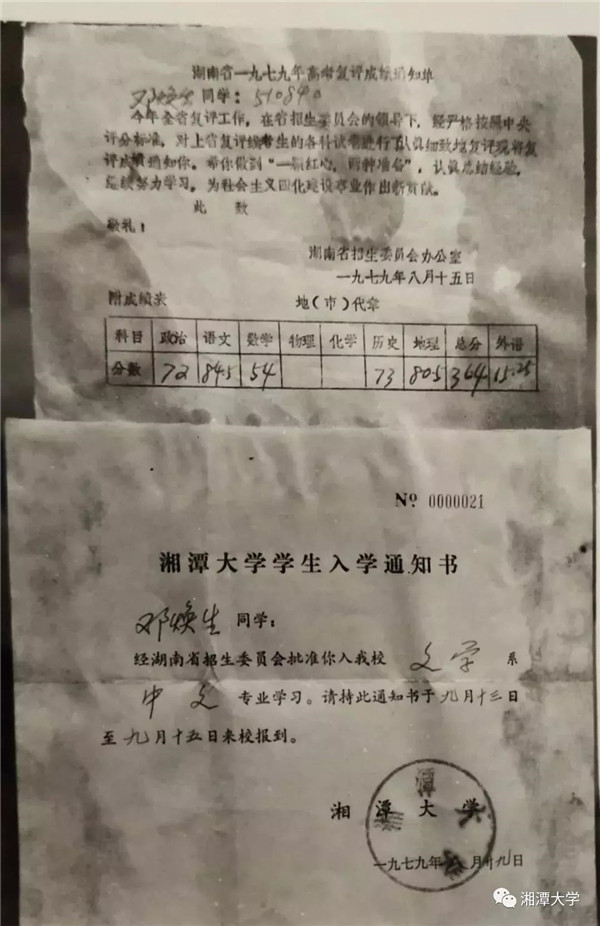 湖南省一九七九年高考复评成绩通知单
邓焕生同学：510840
今年全省复评工作，在省招生委员会的领导下，经严格按照中央
评分标准，对上省复评线考生的各科试卷进行了认真细致地复评现将复
评成绩通知你。希你做到“一颗红心，两种准备”，认真总结经验，
继续努力学习，为社会主义四化建设事业作出新贡献。
此致
敬礼！
湖南省招生委员会办公室
一九七九年八月十五日
附成绩表 地（市）代章
科目 政治 语文 数学 物理 化学 历史 地理 总分 外语
分数 72 84.5 54 73 80.5 364 15.25
№ 0000021
湘潭大学学生入学通知书
邓焕生同学：
经湖南省招生委员会批准你入我校 文学 系
中文 专业学习。请持此通知书于九月十三日
至九月十五日来校报到。
湘潭大学
一九七九年 月十九日
湘潭大学